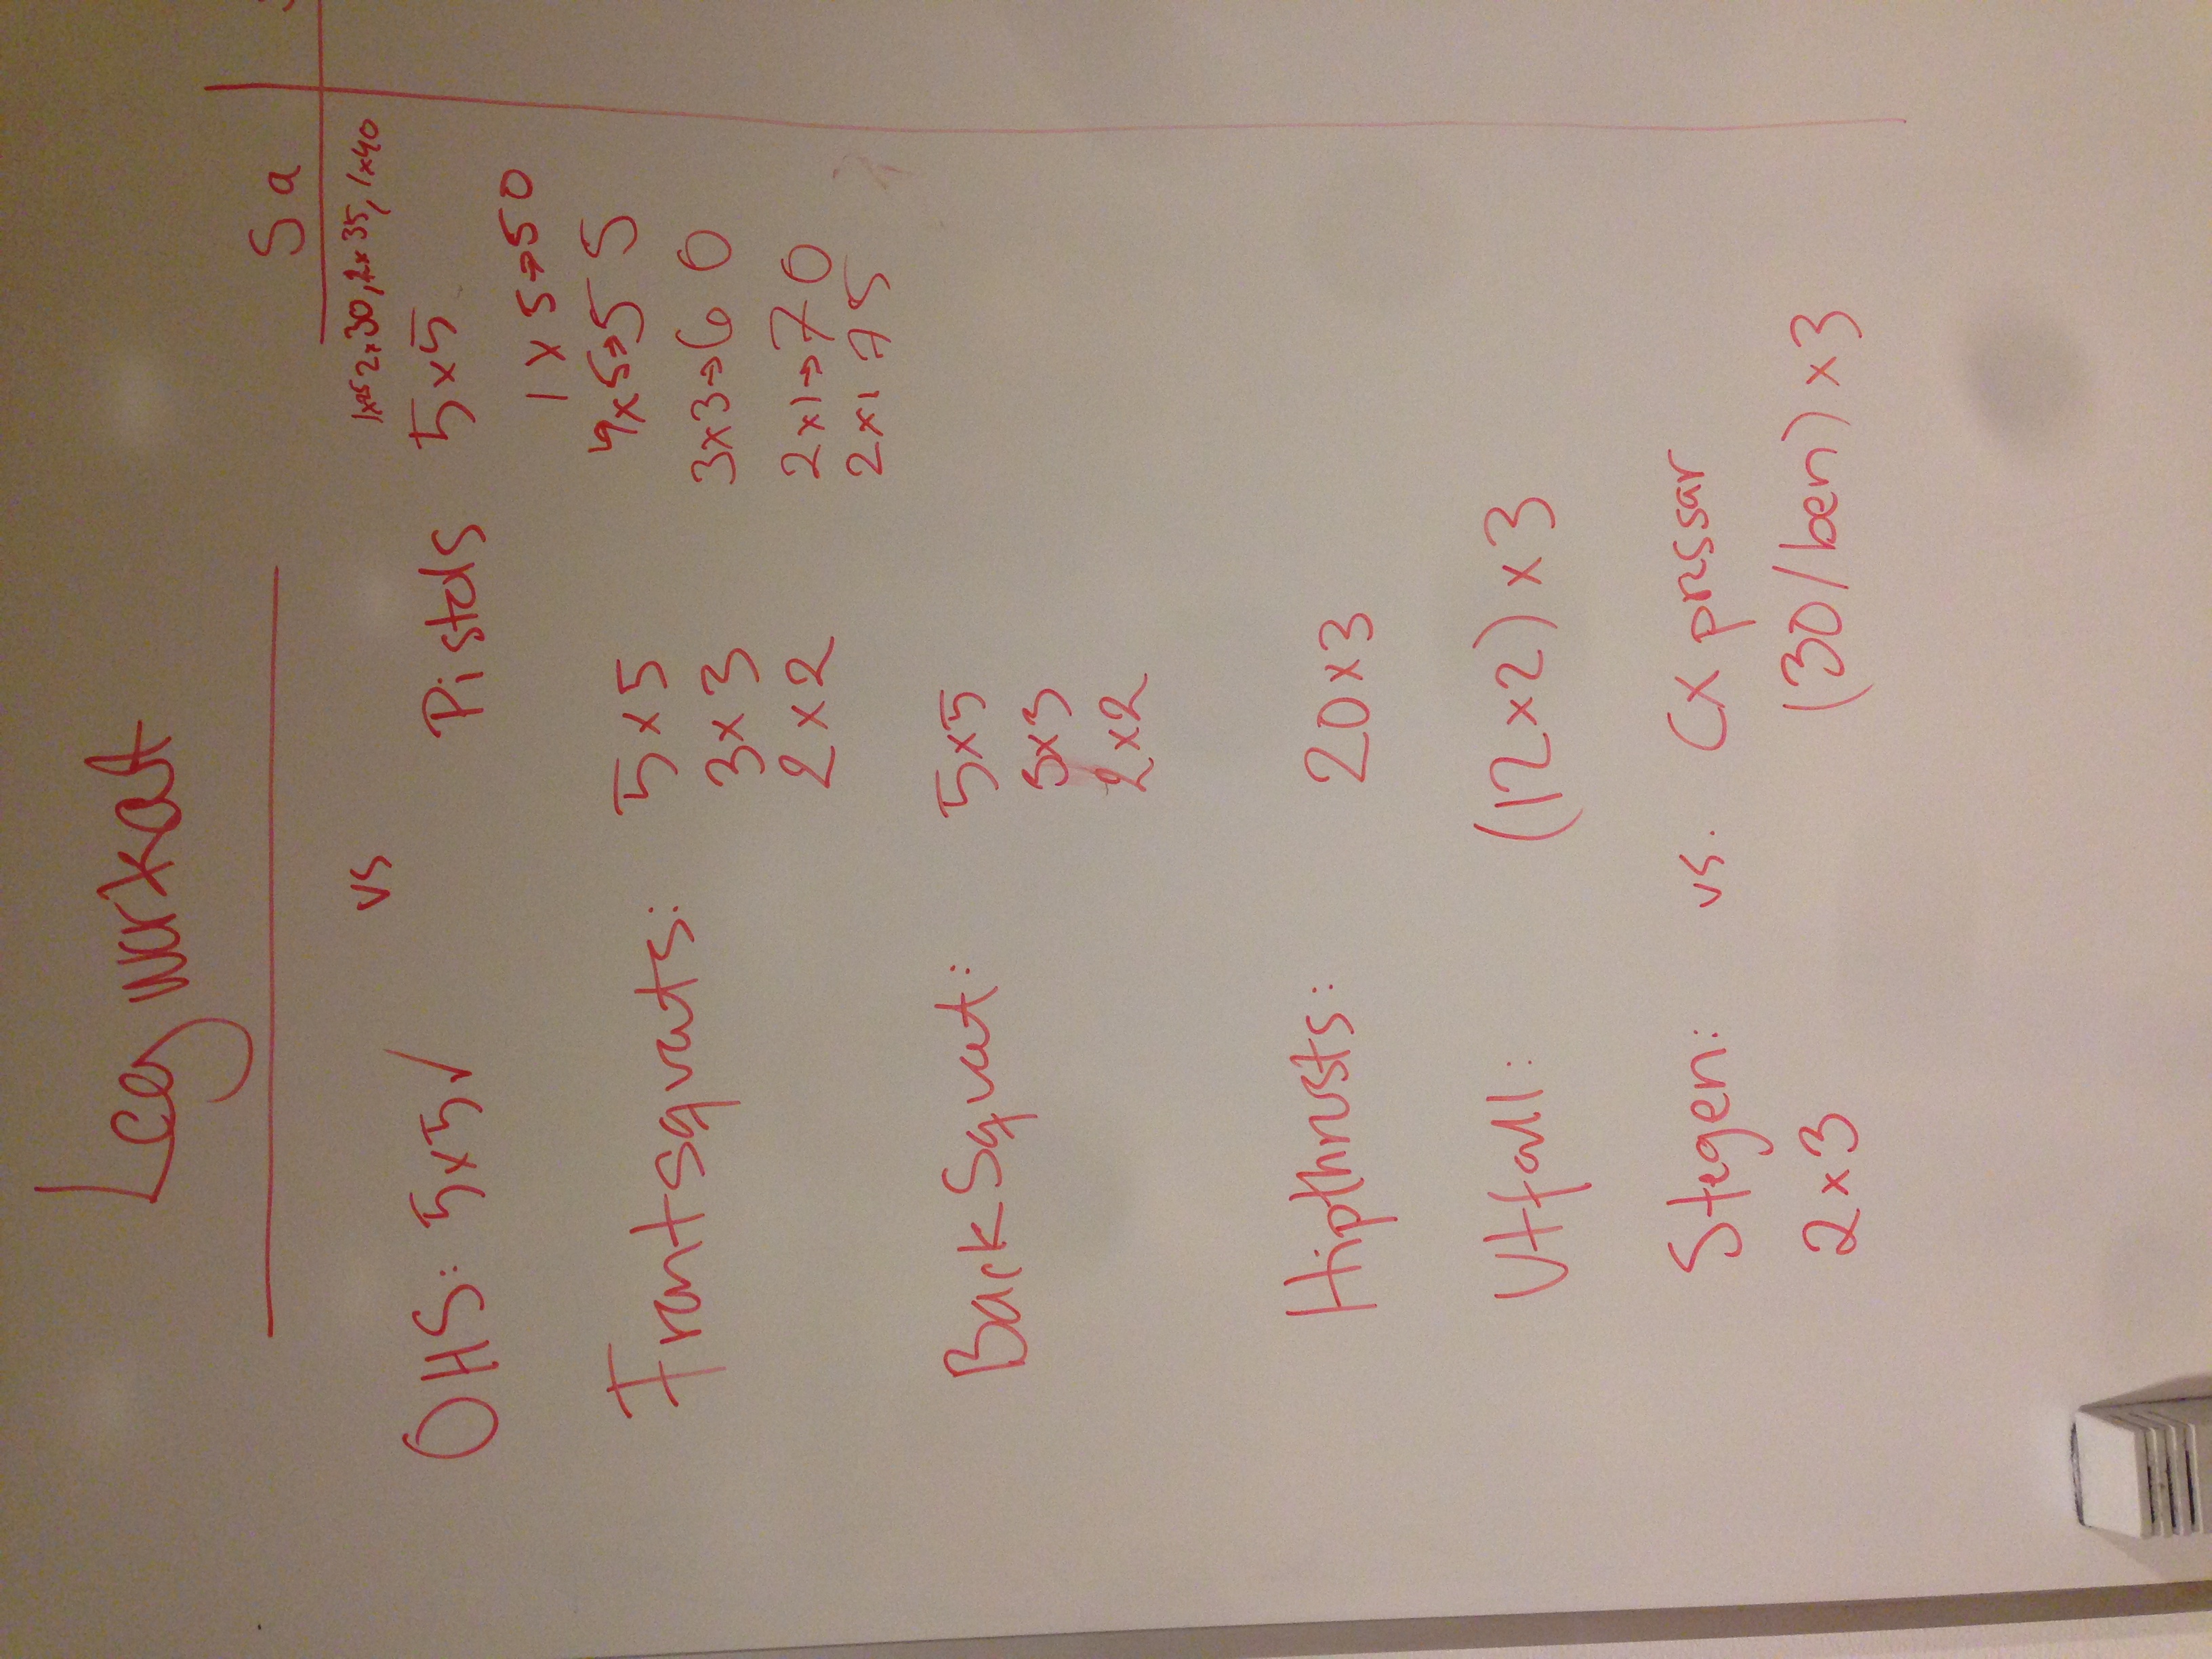 Leg workat
Sa
vs
1x25 2x30, 2x35, 1x40
OHS: 5x5 ✓ Pistols 5x5
1x5→50
Frontsquats: 5x5 4x5→55
3x3 3x3→60
2x2 2x1→70
2x1 75
BackSquat: 5x5
3x3
2x2
Hipthrusts: 20x3
Utfall: (12x2)x3
Stegen: vs. Cx pressar
2x3 (30/ben)x3